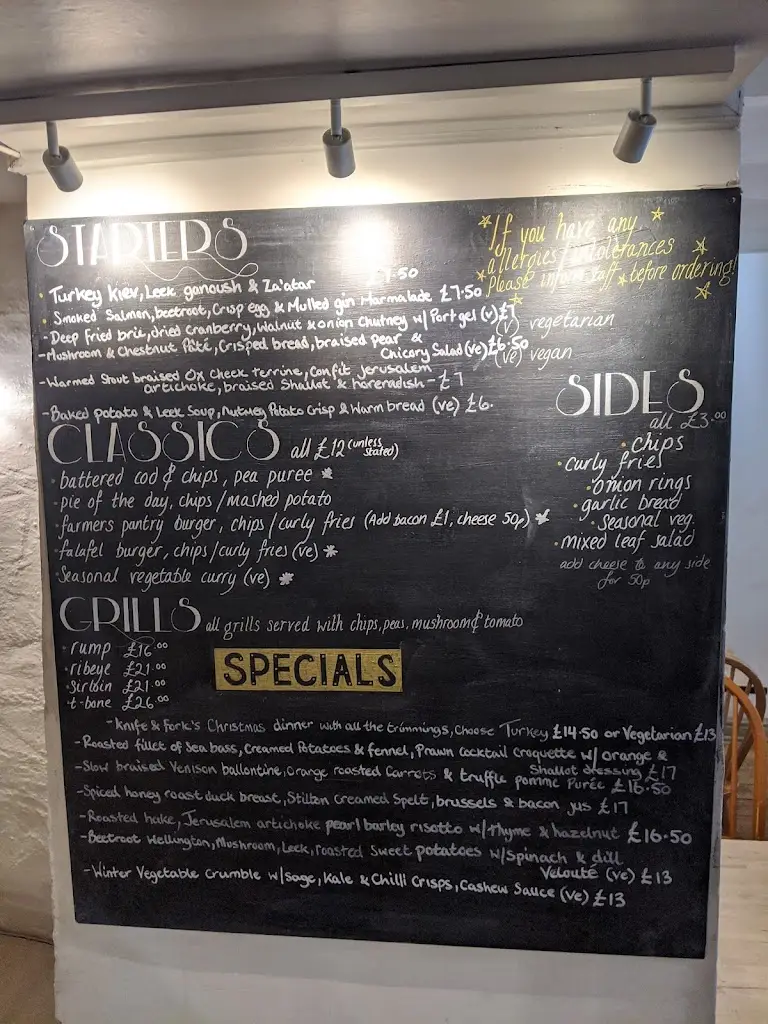 STARTERS
If you have any
allergies/intolerances
Please inform staff before ordering!
- Turkey Kiev, Leek ganoush & Za'atar .50
- Smoked Salmon, beetroot, Crisp egg & Mulled gin Marmalade £7.50
- Deep Fried brie, dried cranberry, Walnut & onion Chutney w/ Port gel (v) £7
(v) vegetarian
- Mushroom & Chestnut Pâté, Crisped bread, braised Pear &
Chicory Salad (ve) £6.50
(ve) vegan
- Warmed Stout braised Ox Cheek terrine, Confit Jerusalem
artichoke, braised Shallot & horeradish - £7
- Baked potato & Leek Soup, Nutmeg Potato Crisp & Warm bread (ve) £6.
SIDES
all £3.00
· chips
· curly fries
· onion rings
· garlic bread
· seasonal veg.
· mixed leaf salad
add cheese to any side
for 50p
CLASSICS all £12 (unless stated)
· battered cod & chips, pea puree *
· pie of the day, chips/mashed potato
· farmers pantry burger, chips/curly fries (Add bacon £1, cheese 50p) *
· falafel burger, chips/curly fries (ve) *
· Seasonal vegetable curry (ve) *
GRILLS all grills served with chips, peas, mushroom & tomato
· rump £16.00
· ribeye £21.00
· Sirloin £21.00
· t-bone £26.00
SPECIALS
- Knife & Fork's Christmas dinner with all the trimmings, Choose Turkey £14.50 or Vegetarian £13
- Roasted fillet of Sea bass, Creamed Potatoes & fennel, Prawn Cocktail croquette w/ orange &
Shallot dressing £17
- Slow braised Venison ballontine, Orange roasted Carrots & truffle pomme Purée £16.50
- Spiced honey roast duck breast, Stilton Creamed Spelt, brussels & bacon jus £17
- Roasted hake, Jerusalem artichoke pearl barley risotto w/ thyme & hazelnut £16.50
- Beetroot Wellington, Mushroom, Leek, roasted Sweet potatoes w/ Spinach & dill
Velouté (ve) £13
- Winter Vegetable Crumble w/ Sage, Kale & Chilli Crisps, Cashew Sauce (ve) £13